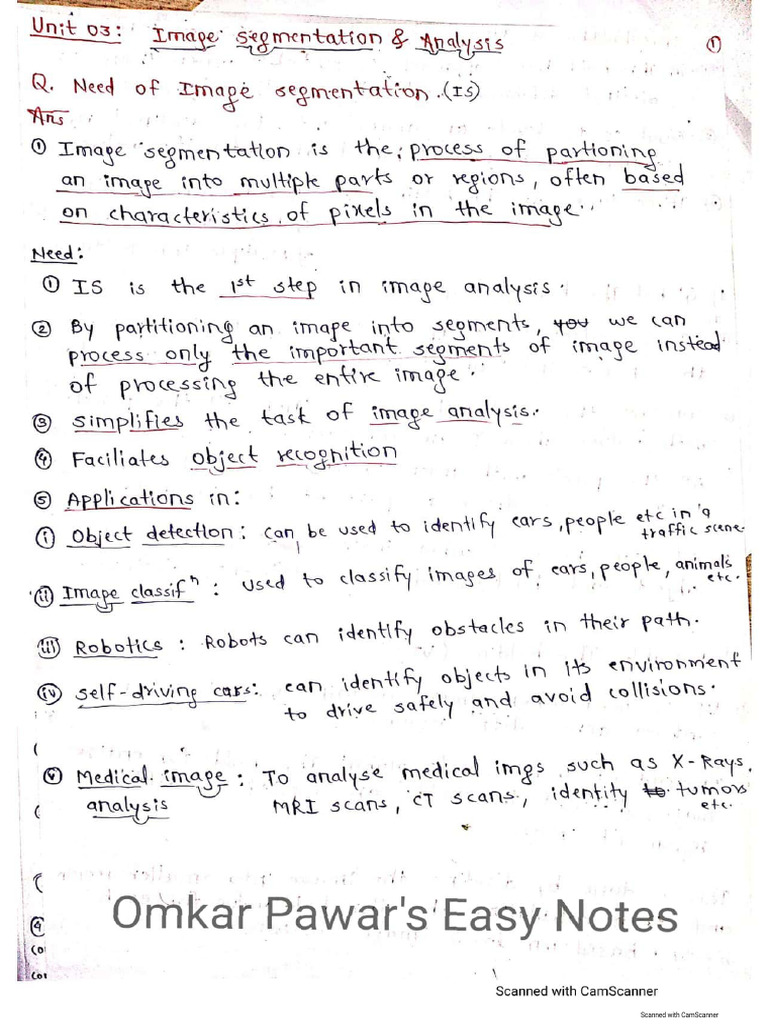 Unit 03: Image segmentation & Analysis
①
Q. Need of Image segmentation. (IS)
Ans
① Image segmentation is the process of partioning
an image into multiple parts or regions, often based
on characteristics of pixels in the image.
Need:
① IS is the 1st step in image analysis.
② By partitioning an image into segments, you we can
process only the important segments of image instead
of processing the entire image.
③ simplifies the task of image analysis.
④ Faciliates object recognition
⑤ Applications in:
(i) Object detection: can be used to identify cars, people etc in a
traffic scene.
(ii) Image classifn : used to classify images of cars, people, animals
etc.
(iii) Robotics : Robots can identify obstacles in their path.
(iv) self-driving cars: can identify objects in its environment
to drive safely and avoid collisions.
(v) Medical image : To analyse medical imgs such as X-Rays,
analysis MRI scans, CT scans, identity to tumors
etc.
Omkar Pawar's Easy Notes
Scanned with CamScanner
Scanned with CamScanner